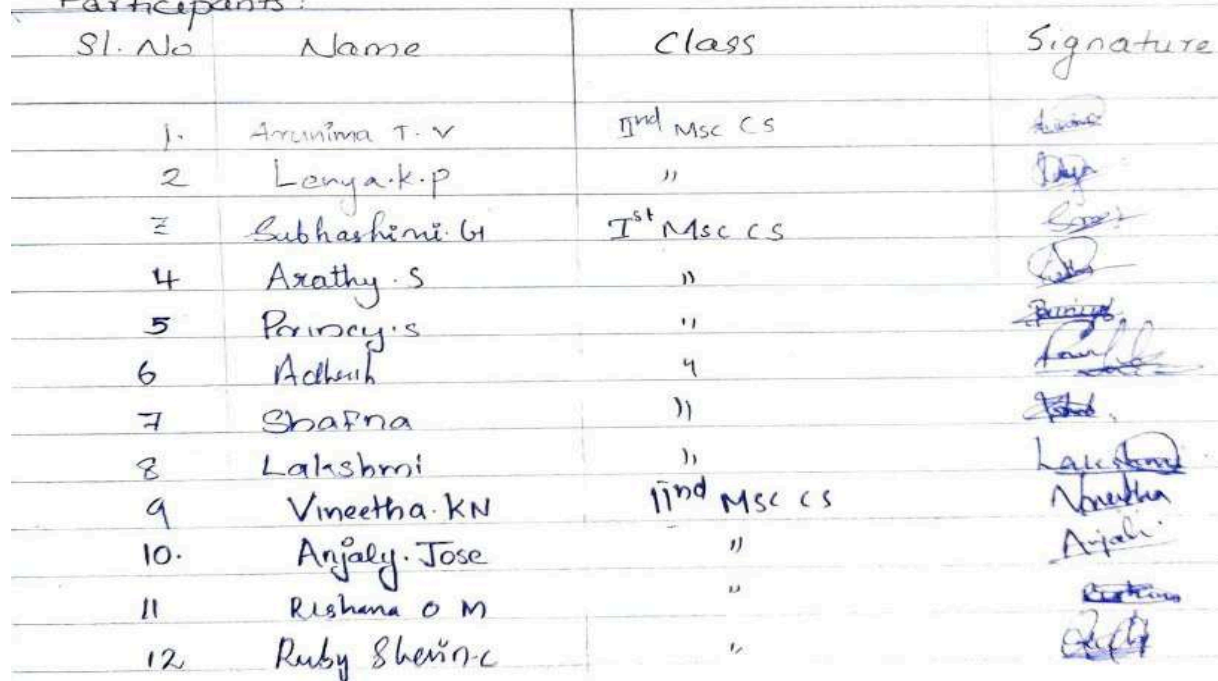 Participants:
Sl. No Name Class Signature
1. Arunima T. V IInd Msc CS
2 Lenya. K. P "
3 Subhashini. G Ist Msc CS
4 Arathy. S "
5 "
6 "
7 Shafna "
8 Lakshmi " Lakshmi
9 Vineetha. KN IInd Msc CS Vineetha
10. Anjaly. Jose " Anjali
11 Rishana O M "
12 Ruby Sherin. C "